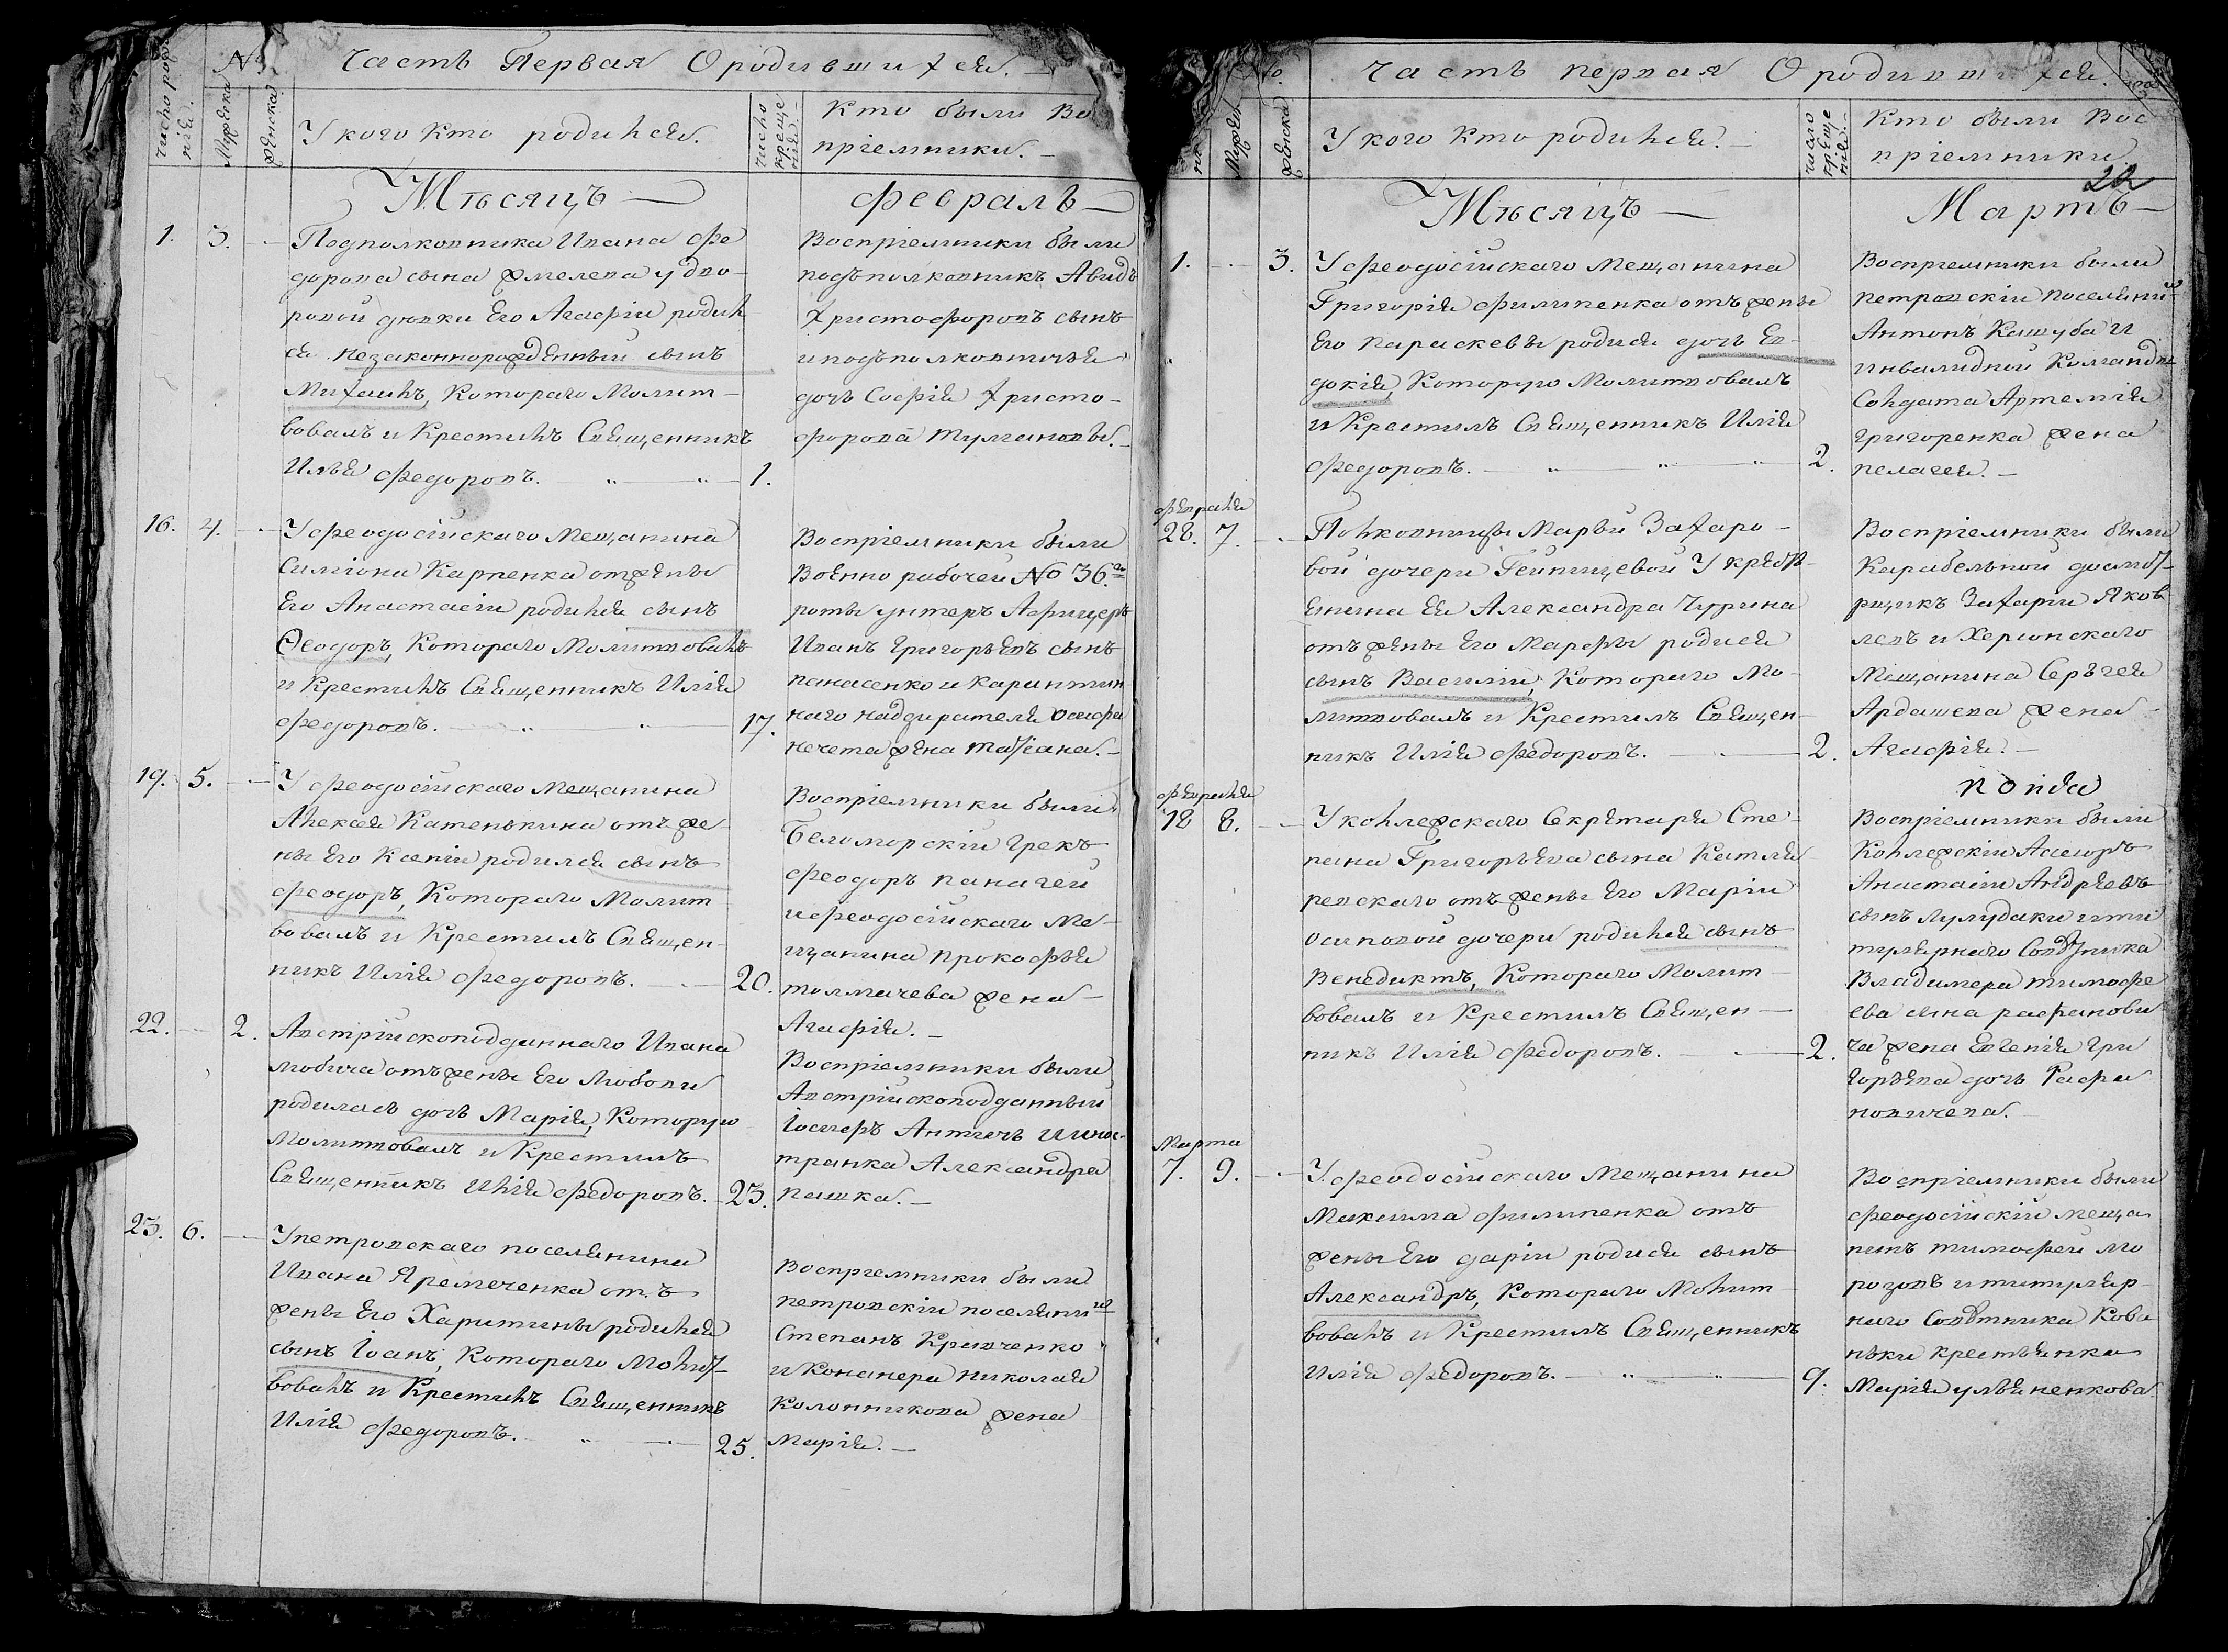 Часть Первая О родившихся.
Число рожде
нія.
№
Мужеска
женска
У кого кто родился.
Число
креще
нія.
Кто были Во
пріемники.
Мѣсяцъ
февраль
1. 3.
Подполковника Ивана Фе
дорова сына Омелева у дво
ровой дѣвки Его Агафіи родил
ся незаконнорожденный сынъ
Михаилъ, котораго Молит
вовалъ и Крестилъ Священникъ
Илья Федоровъ. 1.
Воспріемники были
подъполковникъ Авидъ
Христофоровъ сынъ
и подъполковничья
дочь Софія Христо
форова Тумановы.
16. 4.
У феодосійскаго Мещанина
Симіона Карпенка от жены
Его Анастасіи родился сынъ
Ѳеодоръ, Котораго Молитвовалъ
и Крестилъ Священникъ Илія
Федоровъ. 17.
Воспріемники были
Военно рабочей № 36.й
роты унтеръ Афицеръ
Иванъ Григорьевъ сынъ
панасенко и карантин
наго надзирателя Осифа
нечета жена Татіана.
19. 5.
У феодосійскаго Мещанина
Алексея Катенькина отъ же
ны Его Ксеніи родился сынъ
Феодоръ, Котораго Молит
вовалъ и Крестилъ Священ
никъ Илія Федоровъ. 20.
Воспріемники были
Беломорскій Грекъ
Феодоръ панагей
и феодосійскаго Ме
щанина Прокофья
толмачева жена
Агафія.
22. 2.
Австрійскоподданнаго Ивана
Мобича отъ жены Его Любови
родилась дочь Марія, Которую
Молитвовалъ и Крестилъ
Священникъ Илія Федоровъ. 23.
Воспріемники были
Австрійскоподданный
Іосифъ Античъ и инос
транка Александра
пашка.
23. 6.
У петровскаго поселянина
Ивана Яремеченка отъ
жены Его Харитины родился
сынъ Іоанъ, Котораго Молит
вовалъ и Крестилъ Священникъ
Илія Федоровъ. 25.
Воспріемники были
петровскій поселянинъ
Степанъ Кравченко
и Конанера Николая
Колонникова жена
Марія.
№.
Часть первая О родившихся.
Мужес
женска
У кого кто родился.
число
креще
нія.
Кто были Вос
пріемники.
22
Мѣсяцъ
Мартъ
1. 3.
У феодосійскаго Мещанина
Григорія Филипенка отъ жены
Его Параскевы родися дочь Ев
докія, Которую Молитвовалъ
и Крестилъ Священникъ Илія
Федоровъ. 2.
Воспріемники были
петровскій поселянинъ
Антонъ Кашуба и
инвалидной Команды
Солдата Артемія
григоренка жена
пелагея.
февраля
28. 7.
Полковницы Марьи Захаро
вой дочери Гейницевой У крест
янина Ея Александра Чурина
отъ жены Его Марфы родися
сынъ Василій, Котораго Мо
литвовалъ и Крестилъ Священ
никъ Илія Федоровъ. 2.
Воспріемники были
Карабельной досмот
рщикъ Захарій Яков
левъ и Херсонскаго
Мещанина Сергѣя
Ардашева жена
Агафія.
февраля
18 8.
У колежскаго Секретаря Сте
пана Григорьева сына Катля
ревскаго отъ жены Его Маріи
Осиповой дочери родился сынъ
Венедиктъ, Котораго Молит
вовалъ и Крестилъ Священ
никъ Илія Федоровъ. 2.
Воспріемники были
Колежскій Асесоръ
Анастасій Андреевъ
сынъ Лулудаки и ти
тулярнаго Совѣтника
Владимера тимофе
ева сына рафанови
ча жена Евгенія Гри
горьева дочь Рафа
новичева.
Марта
7. 9.
У феодосійскаго Мещанина
Максима Филипенка отъ
жены Его Даріи родися сынъ
Александръ, Котораго Молит
вовалъ и Крестилъ Священникъ
Илія Федоровъ. 9.
Воспріемники были
феодосійскій меща
нинъ тимофей мо
розовъ и титуляр
наго Совѣтника Кова
ньки крестьянка
Марія ульяненкова